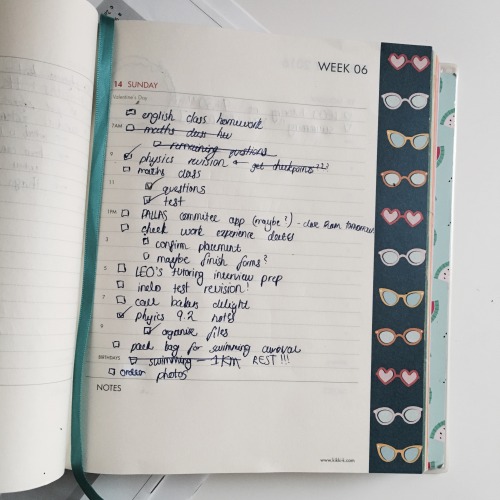 WEEK 06
14 SUNDAY
Valentine's Day
english class homework
7AM maths class hw
remaining questions
9 physics revision & get checkpoints???
maths class
11 questions
test
1PM PALLAS commitee app (maybe?) - due 8am tomorrow
check work experience dates
3 confirm placement
maybe finish forms?
5 LEO's tutoring interview prep
indo test revision!
7 call bakers delight
physics 9.2 notes
9 oganise files
pack bag for swimming carnival
BIRTHDAYS swimming 1KM REST!!!
order photos
NOTES
www.kikki-k.com